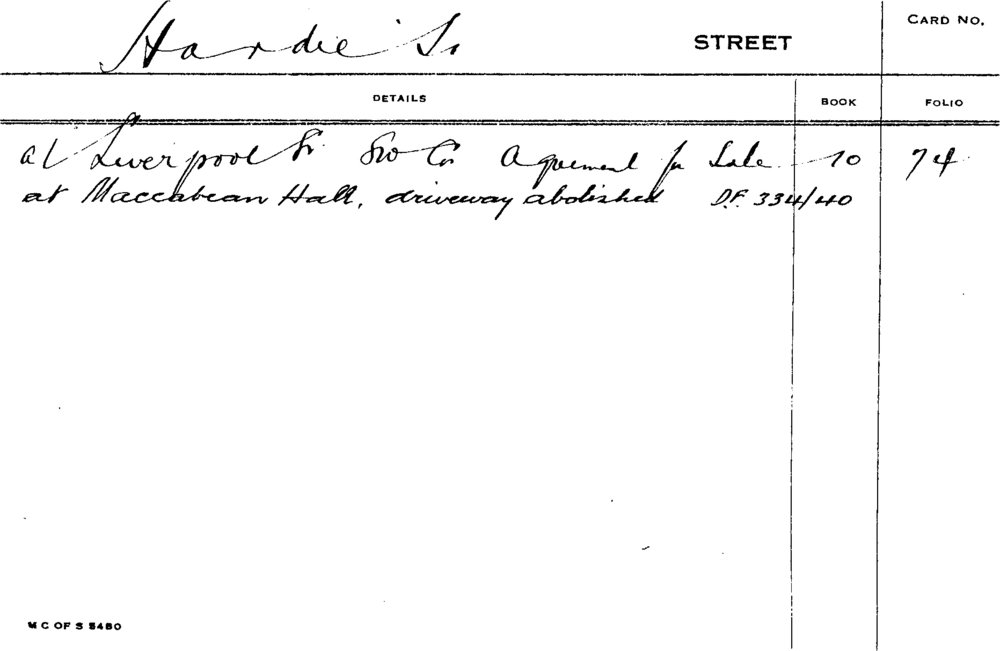 Hardie St STREET CARD NO.
DETAILS BOOK FOLIO
at Liverpool St SW Cr Agreement for Sale 10 74
at Maccabean Hall, driveway abolished D.F. 334/40
M C OF S 5480